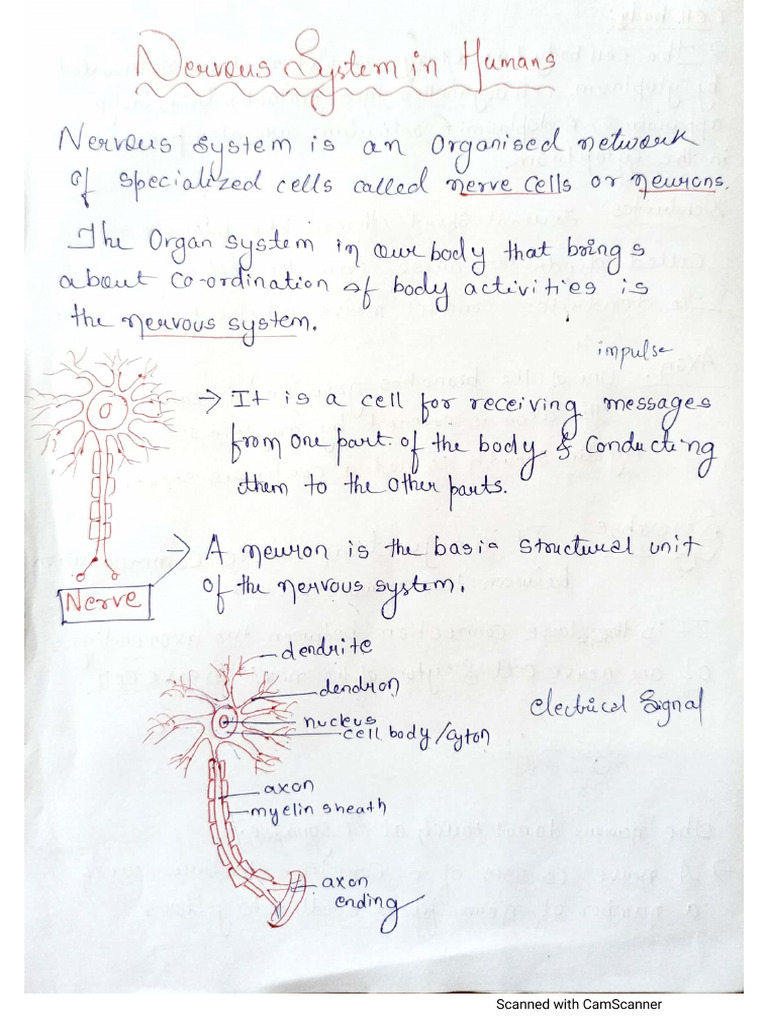 Nervous System in Humans
Nervous system is an Organised network
of specialized cells called nerve cells or neurons.
The Organ system in our body that brings
about co-ordination of body activities is
the nervous system.
impulse
→ It is a cell for receiving messages
from one part of the body & conducting
them to the other parts.
→ A neuron is the basic structural unit
of the nervous system.
Nerve
dendrite
dendron
nucleus
cell body/cyton
electrical signal
axon
myelin sheath
axon
ending
Scanned with CamScanner